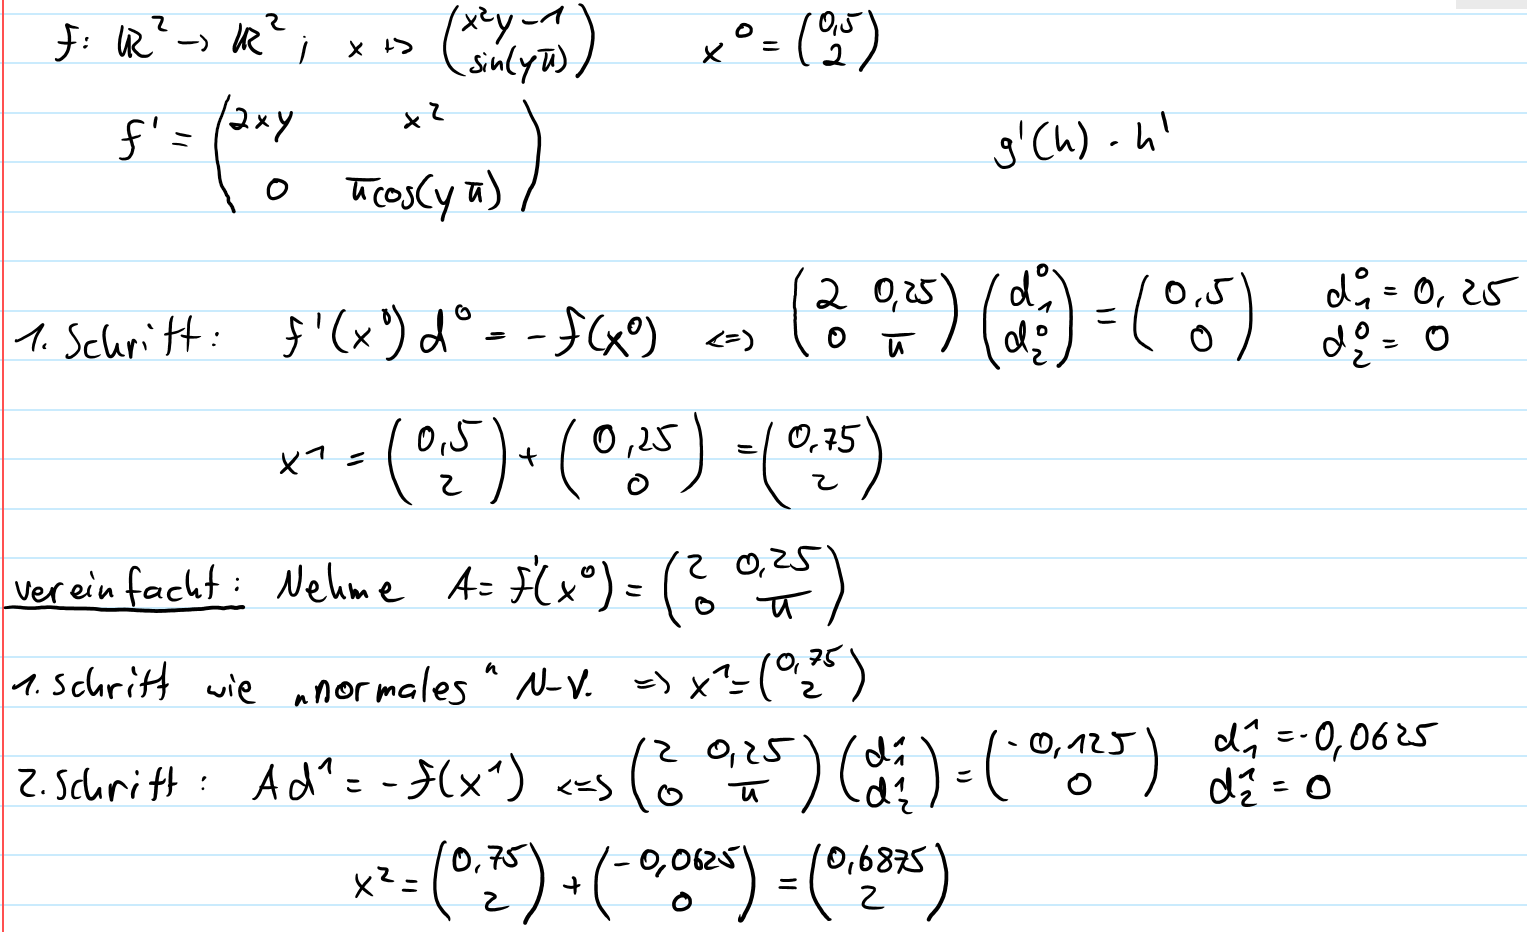 f: ℝ² → ℝ² ; x ↦ (x²y − 1 ; sin(yπ)) x⁰ = (0,5 ; 2)
f' = (2xy x² ; 0 πcos(yπ)) g'(h) · h'
1. Schritt: f'(x⁰) d⁰ = −f(x⁰) <=> (2 0,25 ; 0 π) (d₁⁰ ; d₂⁰) = (0,5 ; 0) d₁⁰ = 0,25 d₂⁰ = 0
x¹ = (0,5 ; 2) + (0,25 ; 0) = (0,75 ; 2)
vereinfacht: Nehme A = f'(x⁰) = (2 0,25 ; 0 π)
1. Schritt wie „normales" N-V. => x¹ = (0,75 ; 2)
2. Schritt: A d¹ = −f(x¹) <=> (2 0,25 ; 0 π) (d₁¹ ; d₂¹) = (−0,125 ; 0) d₁¹ = −0,0625 d₂¹ = 0
x² = (0,75 ; 2) + (−0,0625 ; 0) = (0,6875 ; 2)